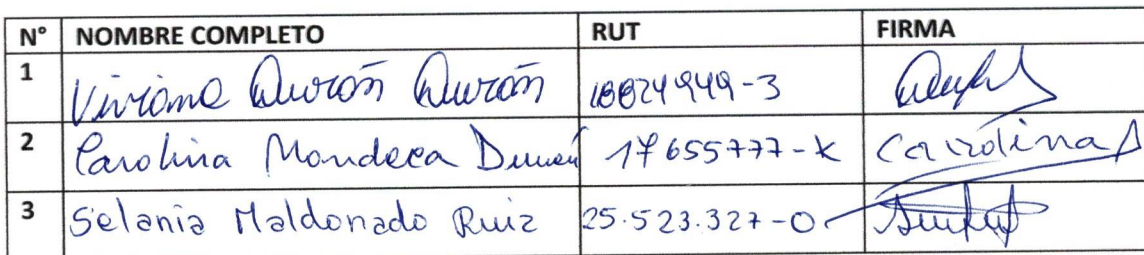 N° NOMBRE COMPLETO RUT FIRMA
1 Viviana Durán Durán 18824949-3
2 Carolina Mondeca 17655777-K Carolina
3 Selania Maldonado Ruiz 25.523.327-0